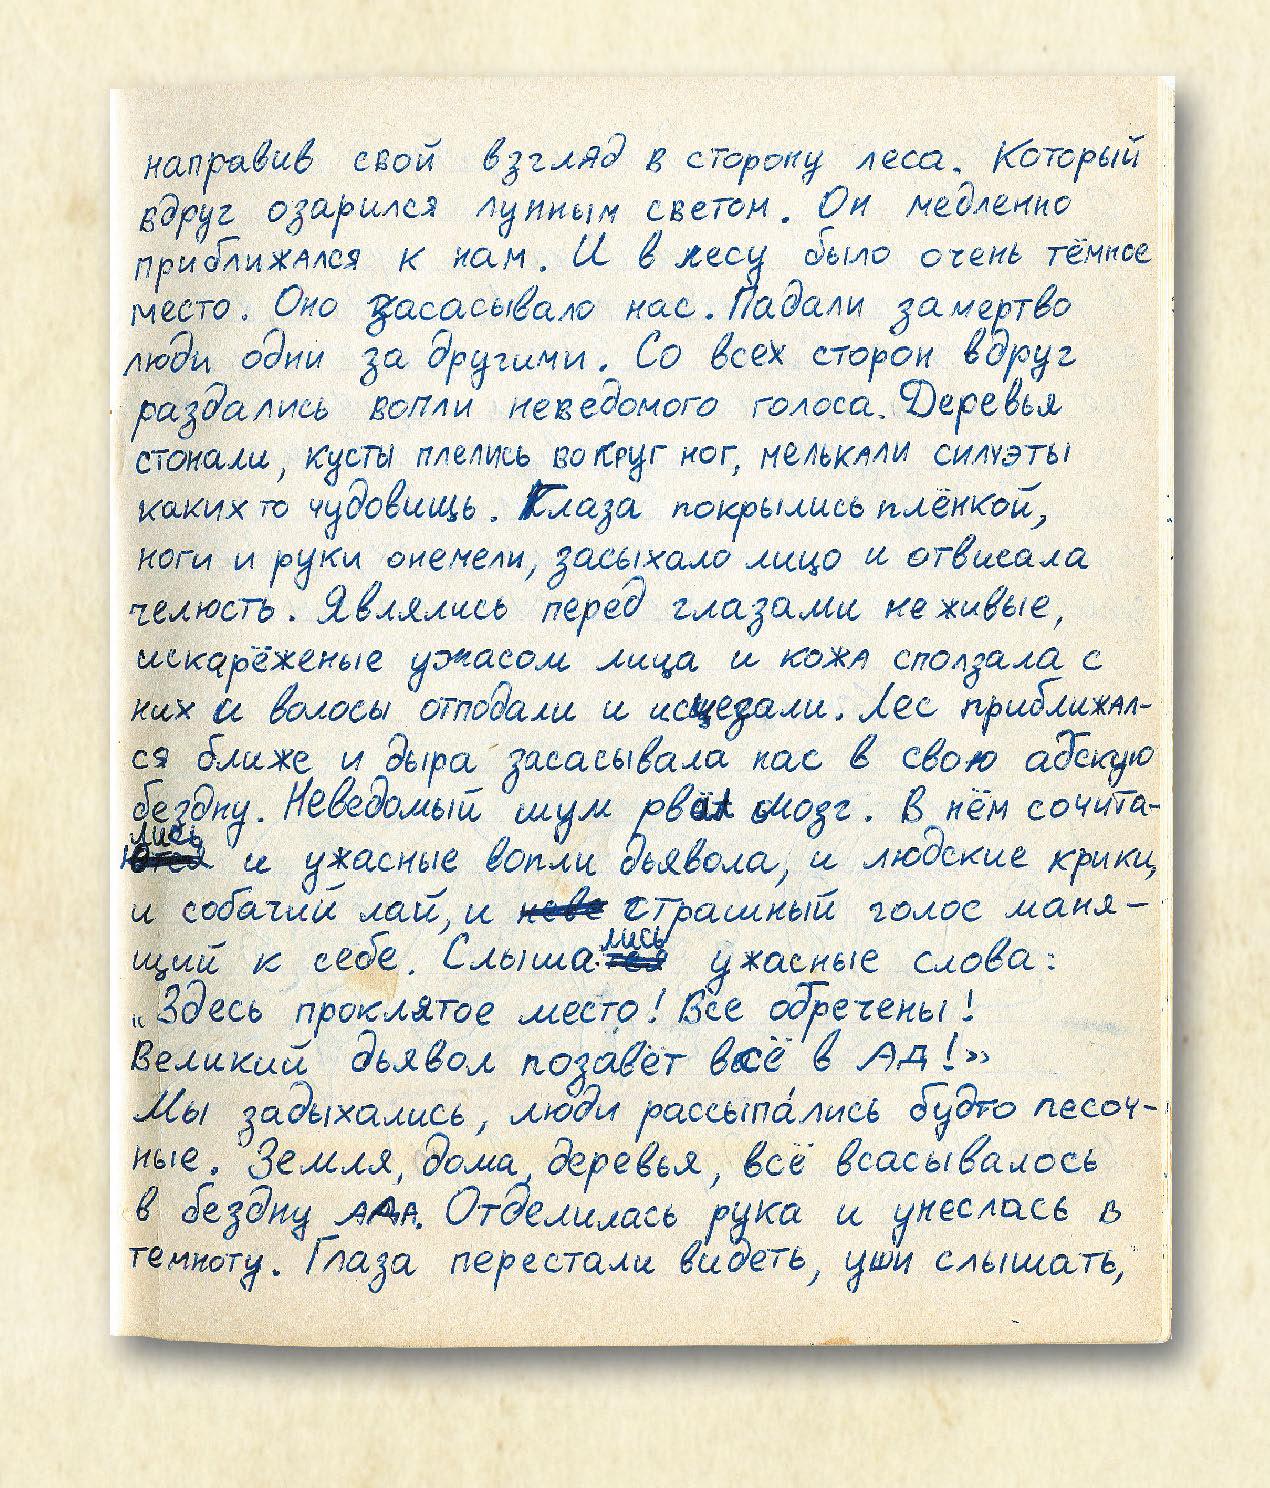 направив свой взгляд в сторону леса. Который
вдруг озарился лунным светом. Он медленно
приближался к нам. И в лесу было очень тёмное
место. Оно засасывало нас. Падали замертво
люди одни за другими. Со всех сторон вдруг
раздались вопли неведомого голоса. Деревья
стонали, кусты плелись вокруг ног, мелькали силуэты
каких то чудовищь. Глаза покрылись плёнкой,
ноги и руки онемели, засыхало лицо и отвисала
челюсть. Являлись перед глазами не живые,
искарёженые ужасом лица и кожа сползала с
них и волосы отподали и исщезали. Лес приближал-
ся ближе и дыра засасывала нас в свою адскую
бездну. Неведомый шум рвал мозг. В нём сочита-
лись и ужасные вопли дьявола, и людские крики,
и собачий лай, и страшный голос маня-
щий к себе. Слышались ужасные слова:
„Здесь проклятое место! Все обречены!
Великий дьявол позавёт всё в АД!»
Мы задыхались, люди рассыпа́лись будто песоч-
ные. Земля, дома, деревья, всё всасывалось
в бездну АДА. Отделилась рука и унеслась в
темноту. Глаза перестали видеть, уши слышать,